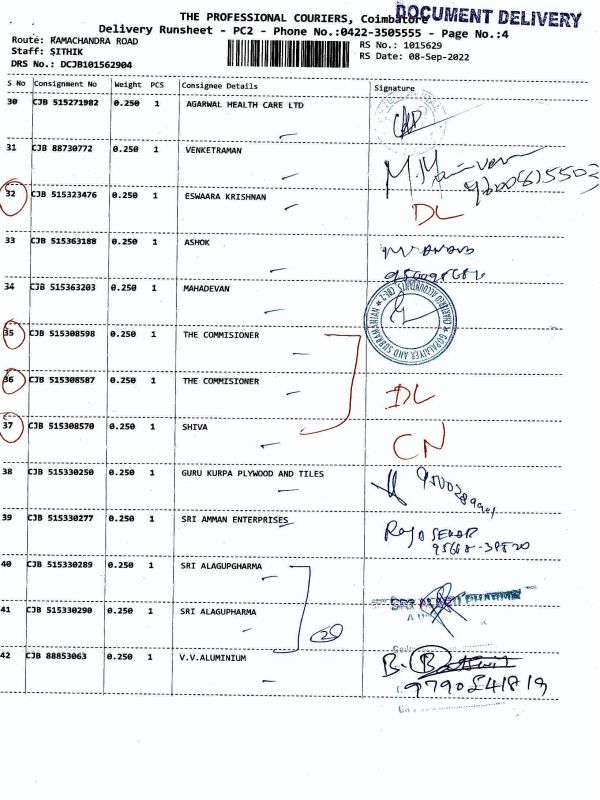 THE PROFESSIONAL COURIERS, Coimbatore
DOCUMENT DELIVERY
Delivery Runsheet - PC2 - Phone No.:0422-3505555 - Page No.:4
Route: RAMACHANDRA ROAD
Staff: SITHIK
DRS No.: DCJB101562904
RS No.: 1015629
RS Date: 08-Sep-2022
S No Consignment No Weight PCS Consignee Details Signature
30 CJB 515271982 0.250 1 AGARWAL HEALTH CARE LTD
31 CJB 88730772 0.250 1 VENKETRAMAN
32 CJB 515323476 0.250 1 ESWAARA KRISHNAN DL
33 CJB 515363188 0.250 1 ASHOK
34 CJB 515363203 0.250 1 MAHADEVAN
GOPALAIYER AND SUBRAMANIAN
35 CJB 515308598 0.250 1 THE COMMISIONER
36 CJB 515308587 0.250 1 THE COMMISIONER DL
37 CJB 515308570 0.250 1 SHIVA CN
38 CJB 515330250 0.250 1 GURU KURPA PLYWOOD AND TILES
39 CJB 515330277 0.250 1 SRI AMMAN ENTERPRISES
40 CJB 515330289 0.250 1 SRI ALAGUPGHARMA
41 CJB 515330290 0.250 1 SRI ALAGUPHARMA
42 CJB 88853063 0.250 1 V.V.ALUMINIUM
9790541819